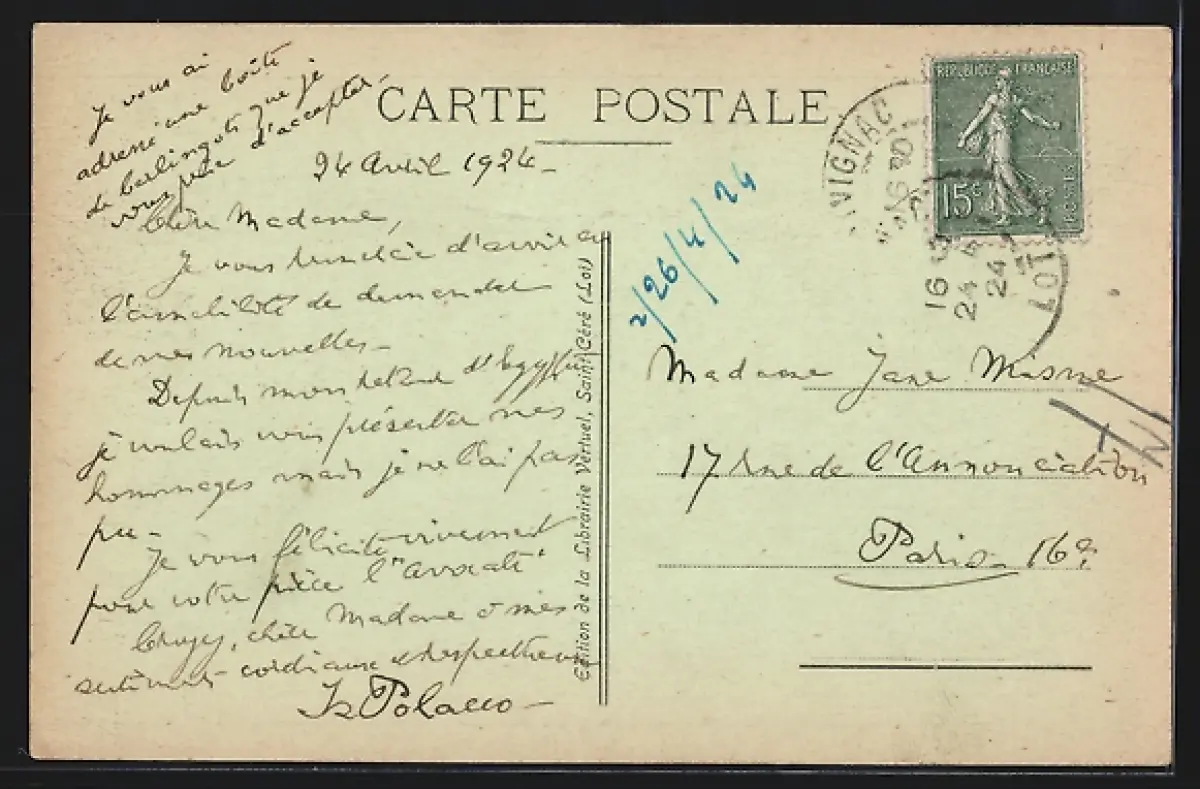 Je vous ai
adressé une boîte
de berlingots que je
vous prie d'accepter
CARTE POSTALE
24 Avril 1924 –
Chère Madame,
Je vous remercie d'avoir eu
l'amabilité de demander
de mes nouvelles –
Depuis mon retour d'Egypte
je voulais vous présenter mes
hommages mais je ne l'ai pas
pu –
Je vous félicite vivement
pour votre pièce l'"avocate"
Croyez, chère Madame à mes
sentiments cordiaux et respectueux
Polacco –
Edition de la Librairie Vertuel, Saint-Céré (Lot)
REPUBLIQUE FRANÇAISE
15c
POSTES
VIGNAC
LOT
16
24 4
24
2/26/4/24
Madame Jane Misme
17 rue de l'Annonciation
Paris 16e